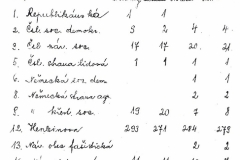 1. Republikánská 1 1
2. Čsl. soc. demokr. 3 2 4 3
3. Čsl. nár. soc. 17 17 20 21
5. Čsl. strana lidová 1 1 1
6. Německá soc. dem 1
8. Německá strana 2
9. " křest. soc. 19 20 7 8
12. Henleinova 293 271 284 279
13. Nár. obec fašistická 2 2